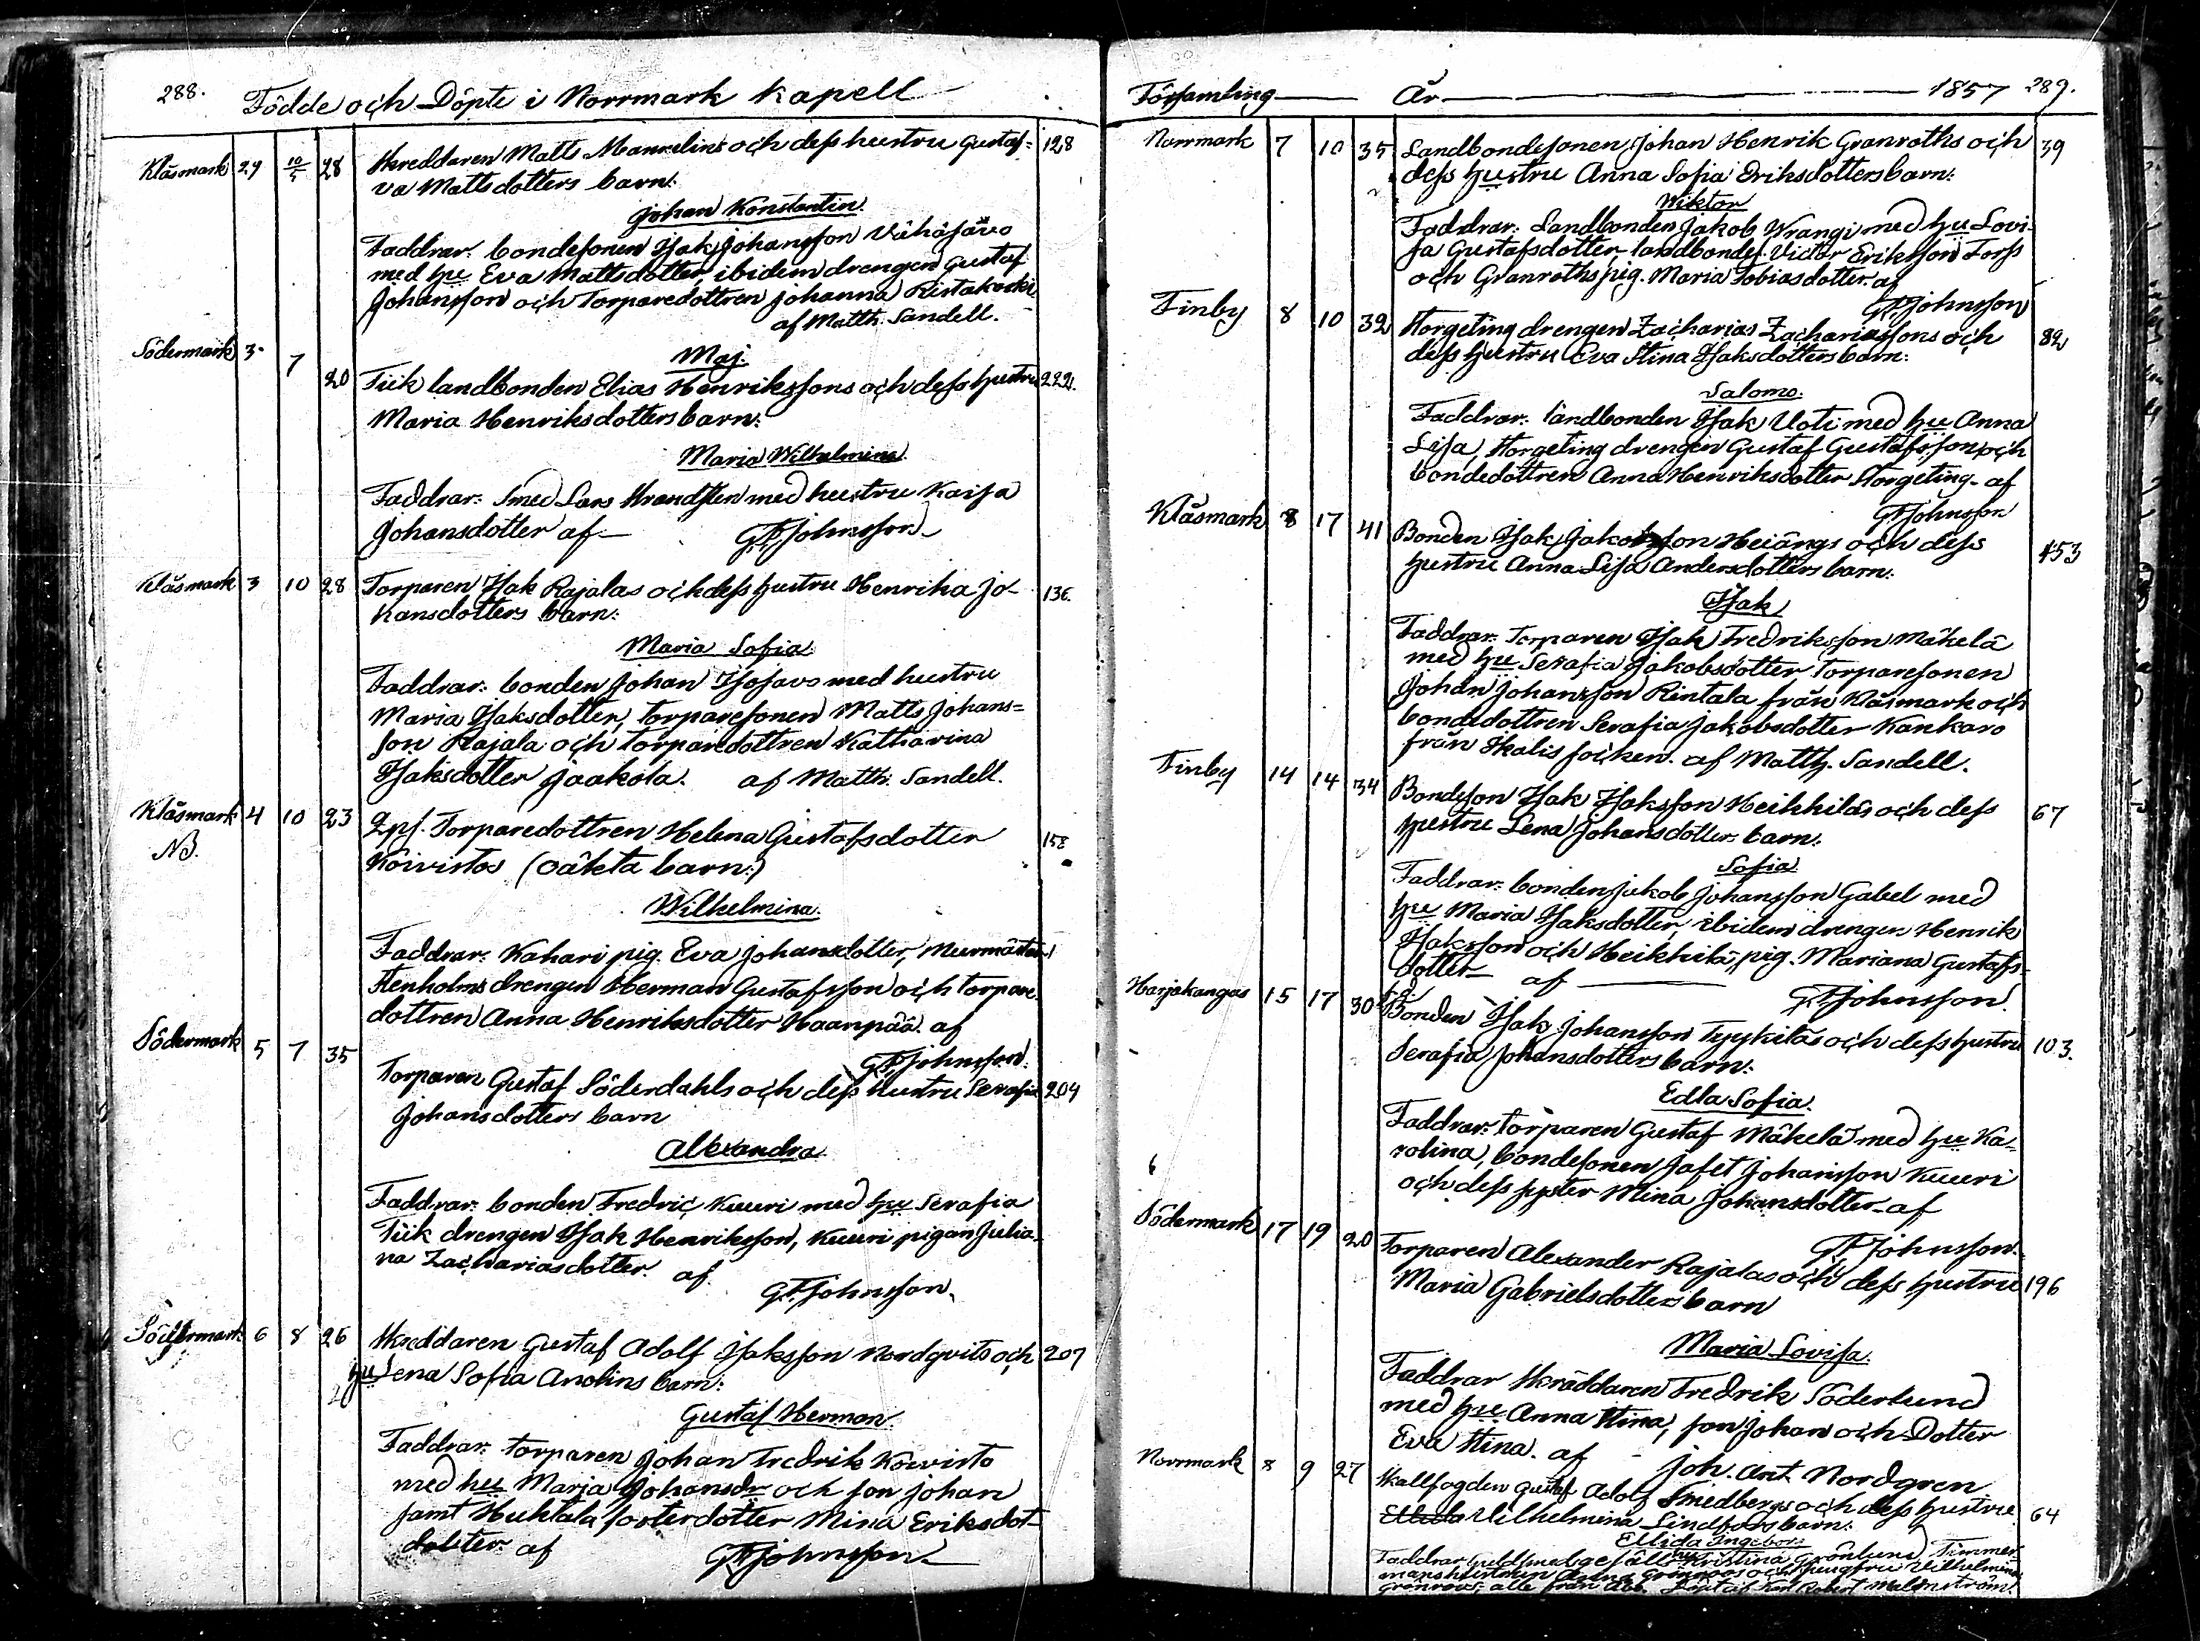 288.
Födde och Döpte i Norrmark Kapell
Klåsmark 29 10/5 28 Skreddaren Matts Manselins och dess hustru Gustaf= 128
va Mattsdotters barn:
Johan Konstantin
Faddrar: bondesonen Isak Johansson Vähäjärvo
med hu Eva Mattsdotter, ibidem drengen Gustaf
Johansson och Torparedottren Johanna Ristakoski
af Matth. Sandell.
Maj.
Södermark 3 7 20 Tiik landbonden Elias Henrikssons och dess hustru 222.
Maria Henriksdotters barn:
Maria Wilhelmina
Faddrar: Smed Lars Strandsten med hustru Kaisa
Johansdotter af G.F. Johnsson
Klåsmark 3 10 28 Torparen Isak Rajalas och dess hustru Henrika Jo- 136.
hansdotters barn:
Maria Sofia
Faddrar: bonden Johan Isosavo med hustru
Maria Isaksdotter, torparesonen Matts Johans=
son Rajala och torparedottren Katharina
Isaksdotter Jaakola. af Matth. Sandell.
Klåsmark 4 10 23 Qpf. Torparedottren Helena Gustafsdotter 158
NB. Koivistos (oäkta barn:)
Wilhelmina.
Faddrar: Kahari pig. Eva Johansdotter, Murmästar
Stenholms drengen Herman Gustafsson och torpare-
dottren Anna Henriksdotter Haanpää. af
G.F. Johnsson.
Södermark 5 7 35 Torparen Gustaf Söderdahls och dess hustru Serafia 204
Johansdotters barn
Alexandra.
Faddrar: bonden Fredric Kuuri med hu Serafia
Tiik drengen Isak Henriksson, Kuuri pigan Julia-
na Zachariasdotter. af
G.F. Johnsson.
Södermark 6 8 26 Skreddaren Gustaf Adolf Isaksson Nordqvits och 207
hu Lena Sofia Anolins barn:
Gustaf Herman
Faddrar: torparen Johan Fredrik Koivisto
med hu Marja Johansdr och son Johan
samt Huhtala fosterdotter Mina Eriksdot-
dotter af G.F. Johnsson
Församling År 1857 289.
Norrmark 7 10 35 Landbondesonen Johan Henrik Granroths och 39
dess hustru Anna Sofia Eriksdotters barn:
Wiktor
Faddrar: Landbonden Jakob Wrangi med hu Lovi-
sa Gustafsdotter, landbondes. Victor Eriksson Forss
och Granroths pig. Maria Tobiasdotter. af
G.F. Johnsson
Finby 8 10 32 Storgeting drengen Zacharias Zachariassons och 82
dess hustru Eva Stina Isaksdotters barn:
Salomo.
Faddrar: landbonden Isak Uoti med hu Anna
Lisa, Storgeting drengen Gustaf Gustafsson och
bondedottren Anna Henriksdotter Storgeting. af
G.F. Johnsson
Klåsmark 8 17 41 Bonden Isak Jakobsson Heiängs och dess 153
hustru Anna Lisa Andersdotters barn:
Isak
Faddrar: Torparen Isak Fredriksson Mäkelä
med hu Serafia Jakobsdotter torparesonen
Johan Johansson Rintala från Klåsmark och
bondedottren Serafia Jakobsdotter Kankaro
från Ikalis socken. af Matth. Sandell.
Finby 14 14 34 Bondeson Isak Isaksson Heikkiläs och dess 67
hustru Lena Johansdotters barn:
Sofia
Faddrar: bonden Jakob Johansson Gabel med
hu Maria Isaksdotter, ibidem drengen Henrik
Isaksson och Heikkilä pig. Mariana Gustafs-
dotter af G.F. Johnsson.
Harjakangas 15 17 30 Bonden Isak Johansson Tyykiläs och dess hustru 103.
Serafia Johansdotters barn:
Edla Sofia.
Faddrar: torparen Gustaf Mäkelä med hu Ka-
rolina, bondesonen Jafet Johansson Kuuri
och dess syster Mina Johansdotter. af
G.F. Johnsson.
Södermark 17 19 20 Torparen Alexander Rajalas och dess hustru 196
Maria Gabrielsdotters barn
Maria Lovisa.
Faddrar Skräddaren Fredrik Söderlund
med hu Anna Stina, son Johan och Dotter
Eva Stina. af Joh. Ant. Nordgren
Norrmark 8 9 27 Skallfogden Gustaf Adolf Smedbergs och dess hustru 64
Wilhelmina Lindfors barn:
Ellida Ingeborg
Faddrar Kristina Grönlund, Timmer-
manshustrun Anna Grönroos och jungfru Wilhelmina
Grönroos alla från Åbo. Robert Malmström